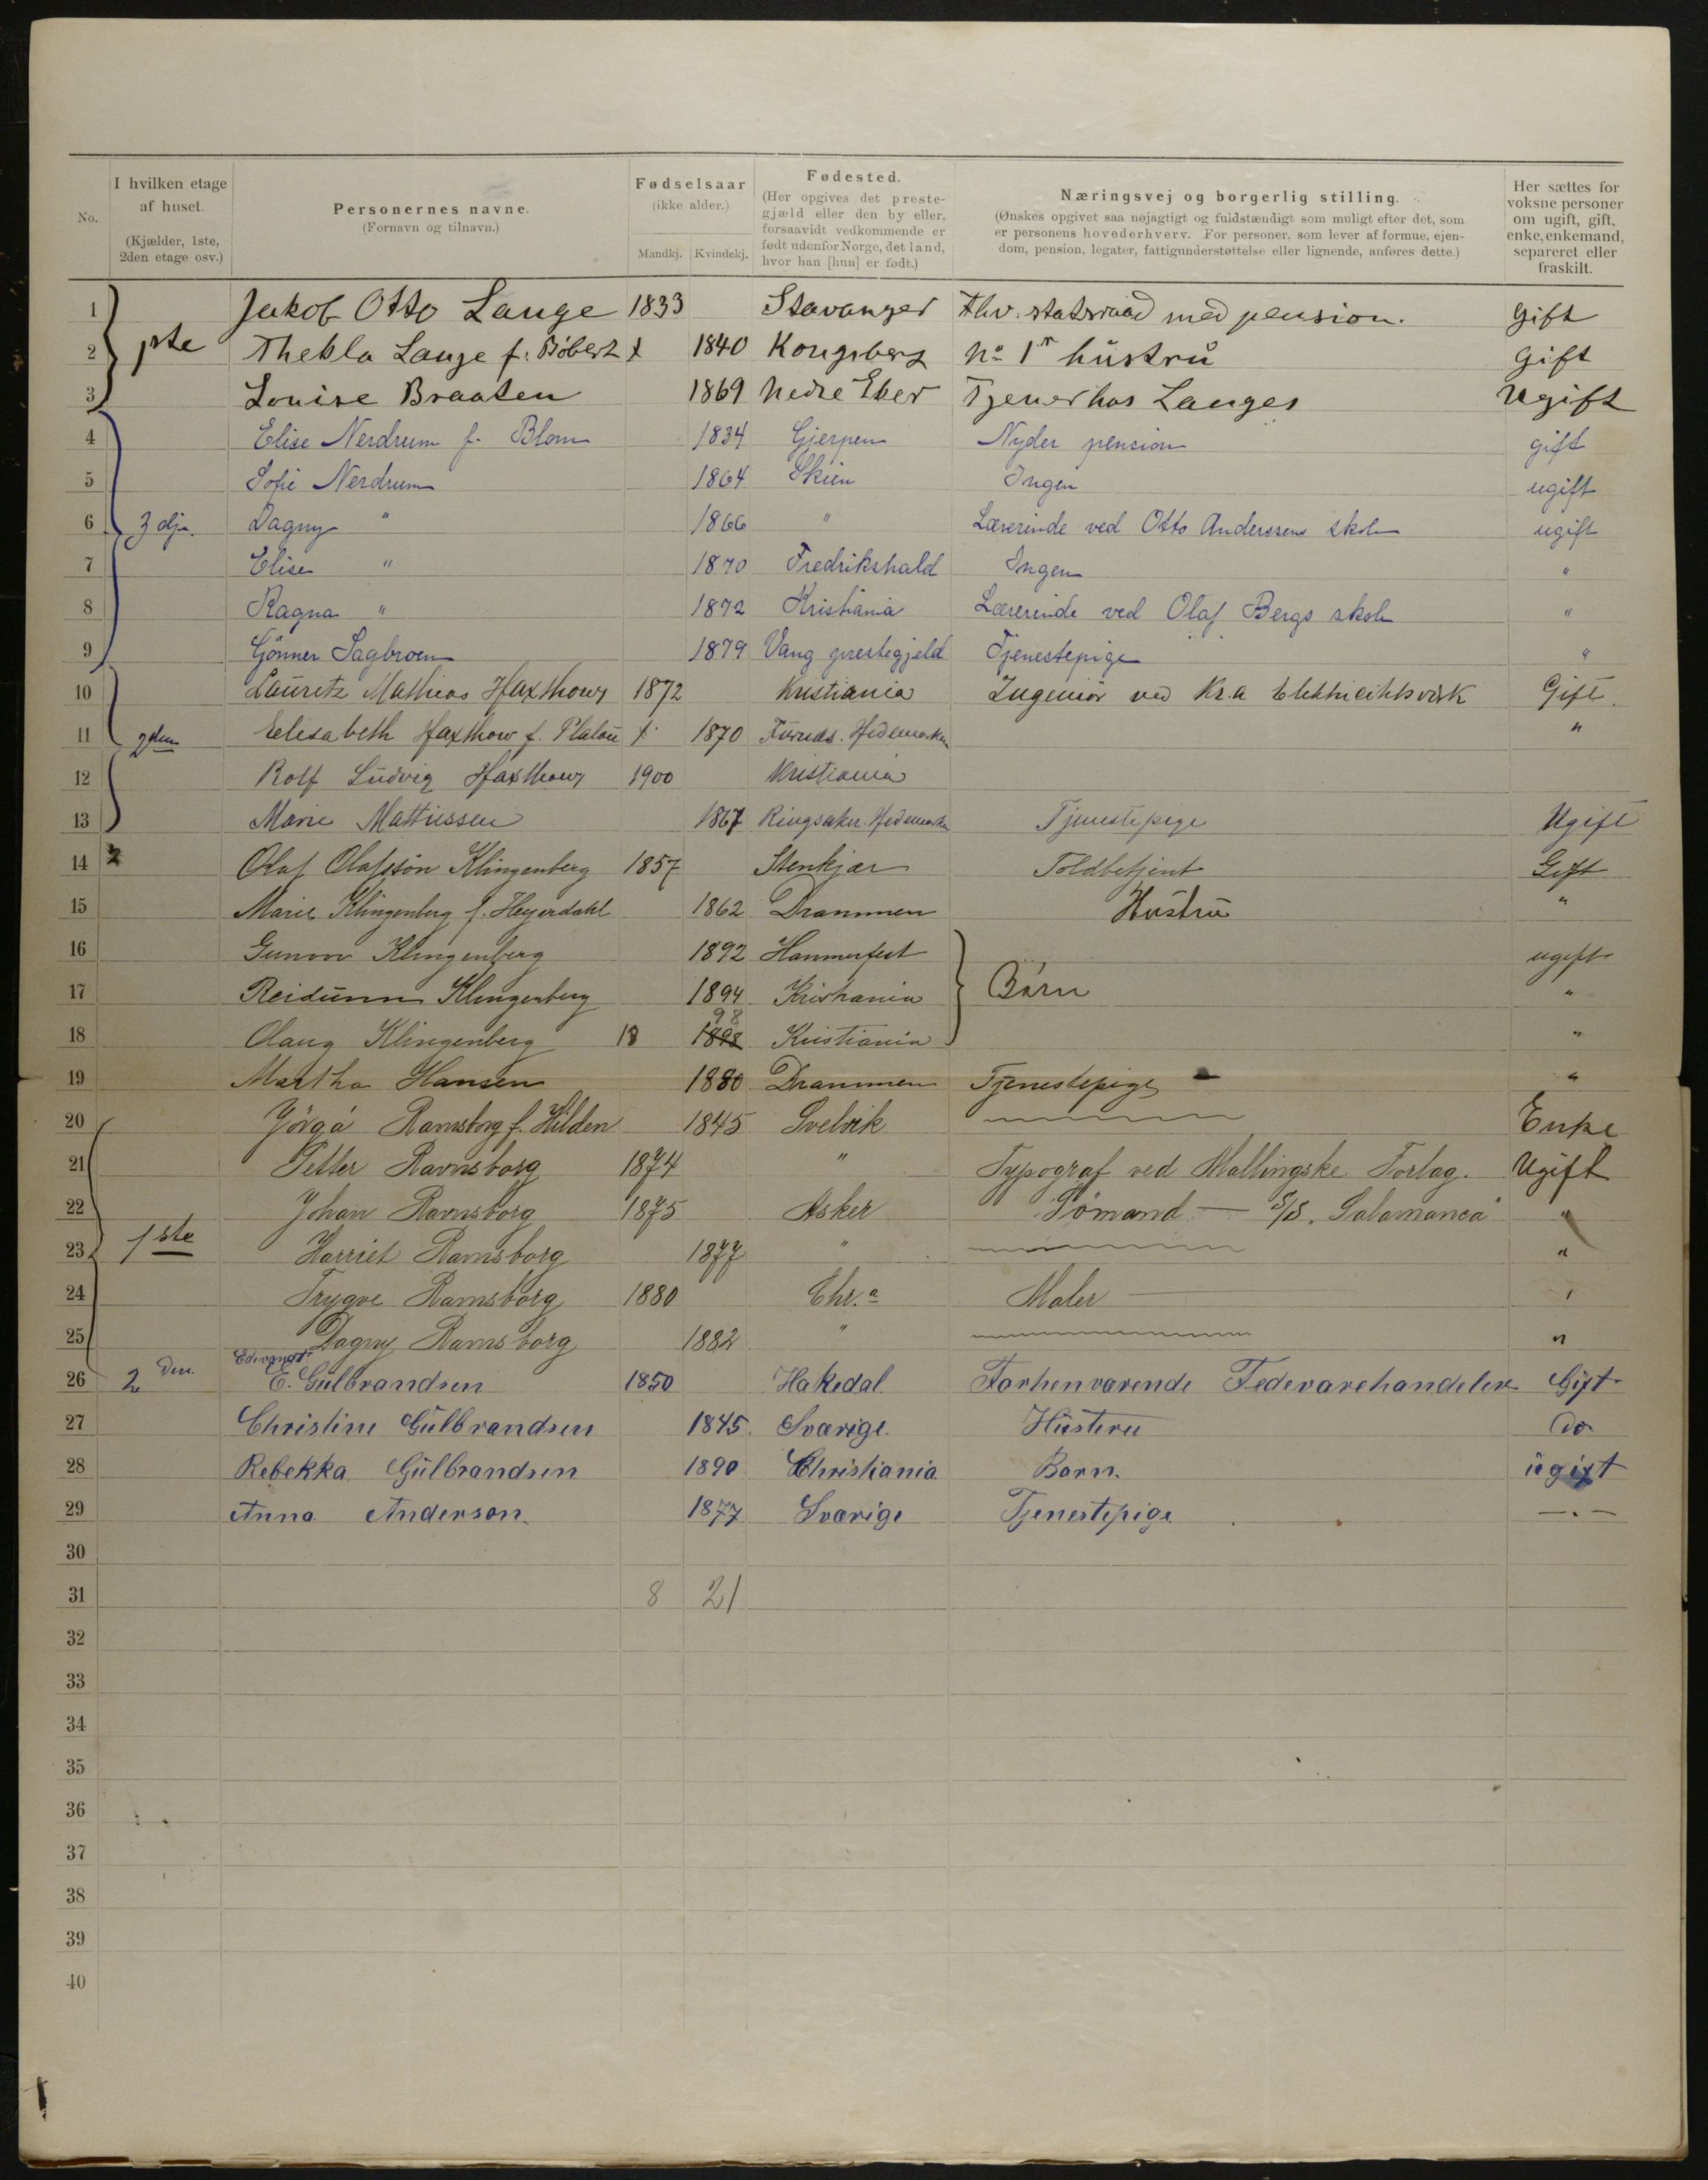 No.
I hvilken etage af huset. (Kjælder, 1ste, 2den etage osv.)
Personernes navne. (Fornavn og tilnavn.)
Fødselsaar (ikke alder.) Mandkj. Kvindekj.
Fødested. (Her opgives det prestegjæld eller den by eller, forsaavidt vedkommende er født udenfor Norge, det land, hvor han [hun] er født.)
Næringsvej og borgerlig stilling. (Ønskes opgivet saa nøjagtigt og fuldstændigt som muligt efter det, som er personens hovederhverv. For personer, som lever af formue, ejendom, pension, legater, fattigunderstøttelse eller lignende, anføres dette.)
Her sættes for voksne personer om ugift, gift, enke, enkemand, separeret eller fraskilt.
1 Jakob Otto Lange 1833 Stavanger Fhv. statsraad med pension. gift
2 1ste Thekla Lange f. Bøbert x 1840 Kongsberg No 1s hustru gift
3 Louise Braaten 1869 Nedre Eker Tjener hos Langes Ugift
4 Elise Nerdrum f. Blom 1834 Gjerpen Nyder pension gift
5 Sofie Nerdrum 1864 Skien Ingen ugift
6 3dje. Dagny " 1866 " Lærerinde ved Otto Anderssens skole ugift
7 Elise " 1870 Fredrikshald Ingen "
8 Ragna " 1872 Kristiania Lærerinde ved Olaf Bergs skole "
9 Gönner Sagbroen 1879 Vang prestegjeld Tjenestepige "
10 Lauritz Mathias Haxthow 1872 Kristiania Ingeniør ved Kr.a Elektricitetsverk Gift.
11 2den Elisabeth Haxthow f. Platou x 1870 Furnes. Hedemarken "
12 Rolf Ludvig Haxthow 1900 Kristiania
13 Marie Mathiessen 1867 Ringsaker. Hedemarken Tjenestepige Ugift
14 2 Olaf Olafssøn Klingenberg 1857 Stenkjær Toldbetjent Gift
15 Marie Klingenberg f. Heyerdahl 1862 Drammen Hustru "
16 Gunvor Klingenberg 1892 Hammerfest ugift
17 Reidunn Klingenberg 1894 Kristiania Børn "
98
18 Olaug Klingenberg 18 1898 Kristiania "
19 Martha Hansen 1880 Drammen Tjenestepige "
20 Jörga Ramsborg f. Hilden 1845 Svelvik Enke
21 Petter Ravnsborg 1874 " Typograf ved Mallingske Forlag. Ugift
22 Johan Ravnsborg 1875 Asker Sömand — S/S. Salamanca "
23 1ste Harriet Ramsborg 1877 " "
24 Trygve Ramsborg 1880 Chr.a Maler "
25 Dagny Ramsborg 1882 " "
26 2den E. Gulbrandsen 1850 Hakedal Forhenværende Fedevarehandeler Gift
27 Christine Gulbrandsen 1845. Sværige. Husteru Do
28 Rebekka Gulbrandsen 1890 Christiania Barn. ugift
29 Anna Anderson. 1877 Sværige Tjenestepige —.—
30
31 8 21
32
33
34
35
36
37
38
39
40